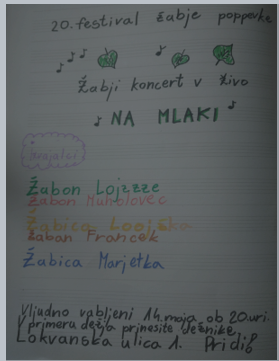 20. festival žabje popevke
Žabji koncert v živo
NA MLAKI
Izvajalci
Žabon Lojzzze
Žabon Muholovec
Žabica Loojzka
Žaban Francek
Žabica Marjetka
Vljudno vabljeni 14. maja, ob 20. uri.
V primeru dežja prinesite dežnike.
Lokvanska ulica 1. Pridi!